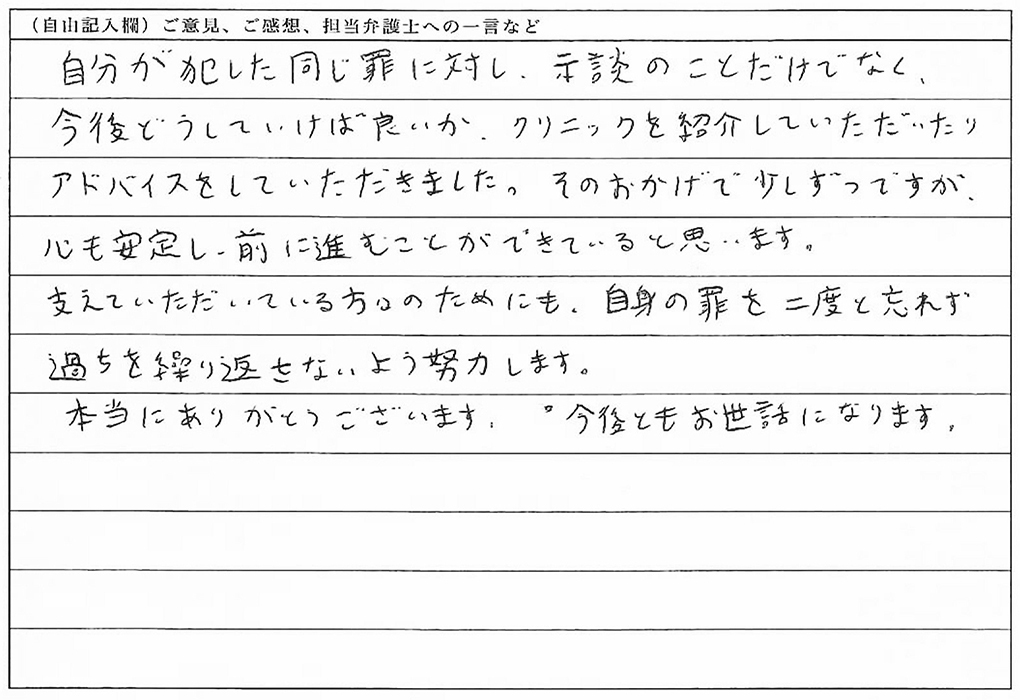 （自由記入欄）ご意見、ご感想、担当弁護士への一言など
自分が犯した同じ罪に対し、示談のことだけでなく、
今後どうしていけば良いか、クリニックを紹介していただいたり
アドバイスをしていただきました。そのおかげで少しずつですが、
心も安定し、前に進むことができていると思います。
支えていただいている方々のためにも、自身の罪を二度と忘れず
過ちを繰り返さないよう努力します。
本当にありがとうございます。今後ともお世話になります。